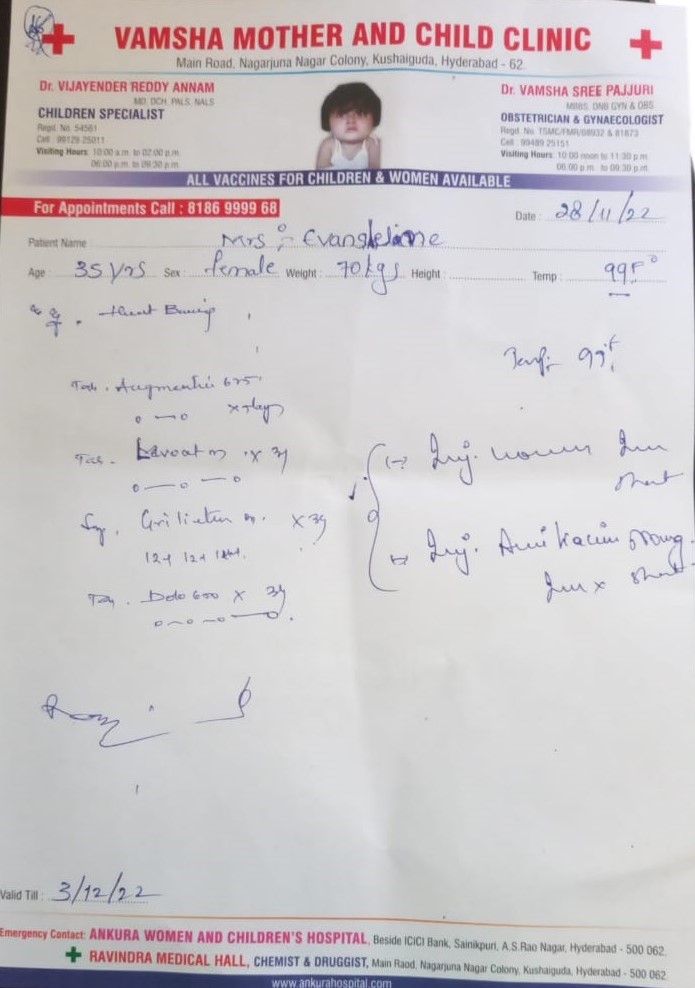 VAMSHA MOTHER AND CHILD CLINIC
Main Road, Nagarjuna Nagar Colony, Kushaiguda, Hyderabad - 62.
Dr. VIJAYENDER REDDY ANNAM
MD, DCH, PALS, NALS
CHILDREN SPECIALIST
Regd. No. 54561
Cell : 99129 25011
Visiting Hours: 10:00 a.m. to 02:00 p.m.
06:00 p.m. to 09:30 p.m.
Dr. VAMSHA SREE PAJJURI
MBBS, DNB GYN & OBS
OBSTETRICIAN & GYNAECOLOGIST
Regd. No. TSMC/FMR/08932 & 81873
Cell : 99489 25151
Visiting Hours: 10:00 noon to 11:30 p.m.
06:00 p.m. to 09:30 p.m.
ALL VACCINES FOR CHILDREN & WOMEN AVAILABLE
For Appointments Call : 8186 9999 68
Date : 28/11/22
Patient Name : Mrs :- Evangleline
Age : 35 yrs Sex : female Weight : 70 kgs Height : Temp : 99F°
Temp: 99°F
Tab. Augmentin 625
Tab. x 3d
Syp. x 3d
Tab. Dolo 600 x 3d
Inj. Inj. Amikacin
Valid Till : 3/12/22
Emergency Contact: ANKURA WOMEN AND CHILDREN'S HOSPITAL, Beside ICICI Bank, Sainikpuri, A.S.Rao Nagar, Hyderabad - 500 062.
RAVINDRA MEDICAL HALL, CHEMIST & DRUGGIST, Main Raod, Nagarjuna Nagar Colony, Kushaiguda, Hyderabad - 500 062.
www.ankurahospital.com